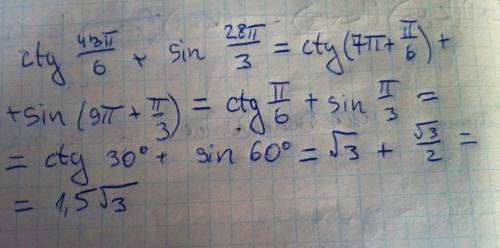 ctg 43π/6 + sin 28π/3 = ctg(7π + π/6) +
+ sin (9π + π/3) = ctg π/6 + sin π/3 =
= ctg 30° + sin 60° = √3 + √3/2 =
= 1,5√3